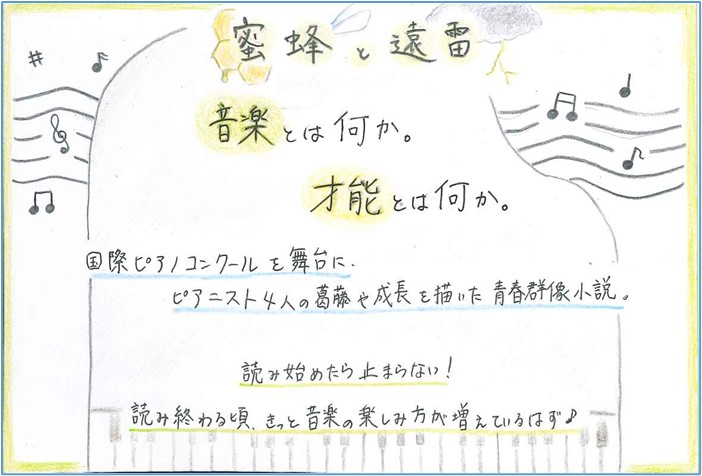 蜜蜂と遠雷
音楽とは何か。
才能とは何か。
国際ピアノコンクールを舞台に、
ピアニスト4人の葛藤や成長を描いた青春群像小説。
読み始めたら止まらない!
読み終わる頃、きっと音楽の楽しみ方が増えているはず♪